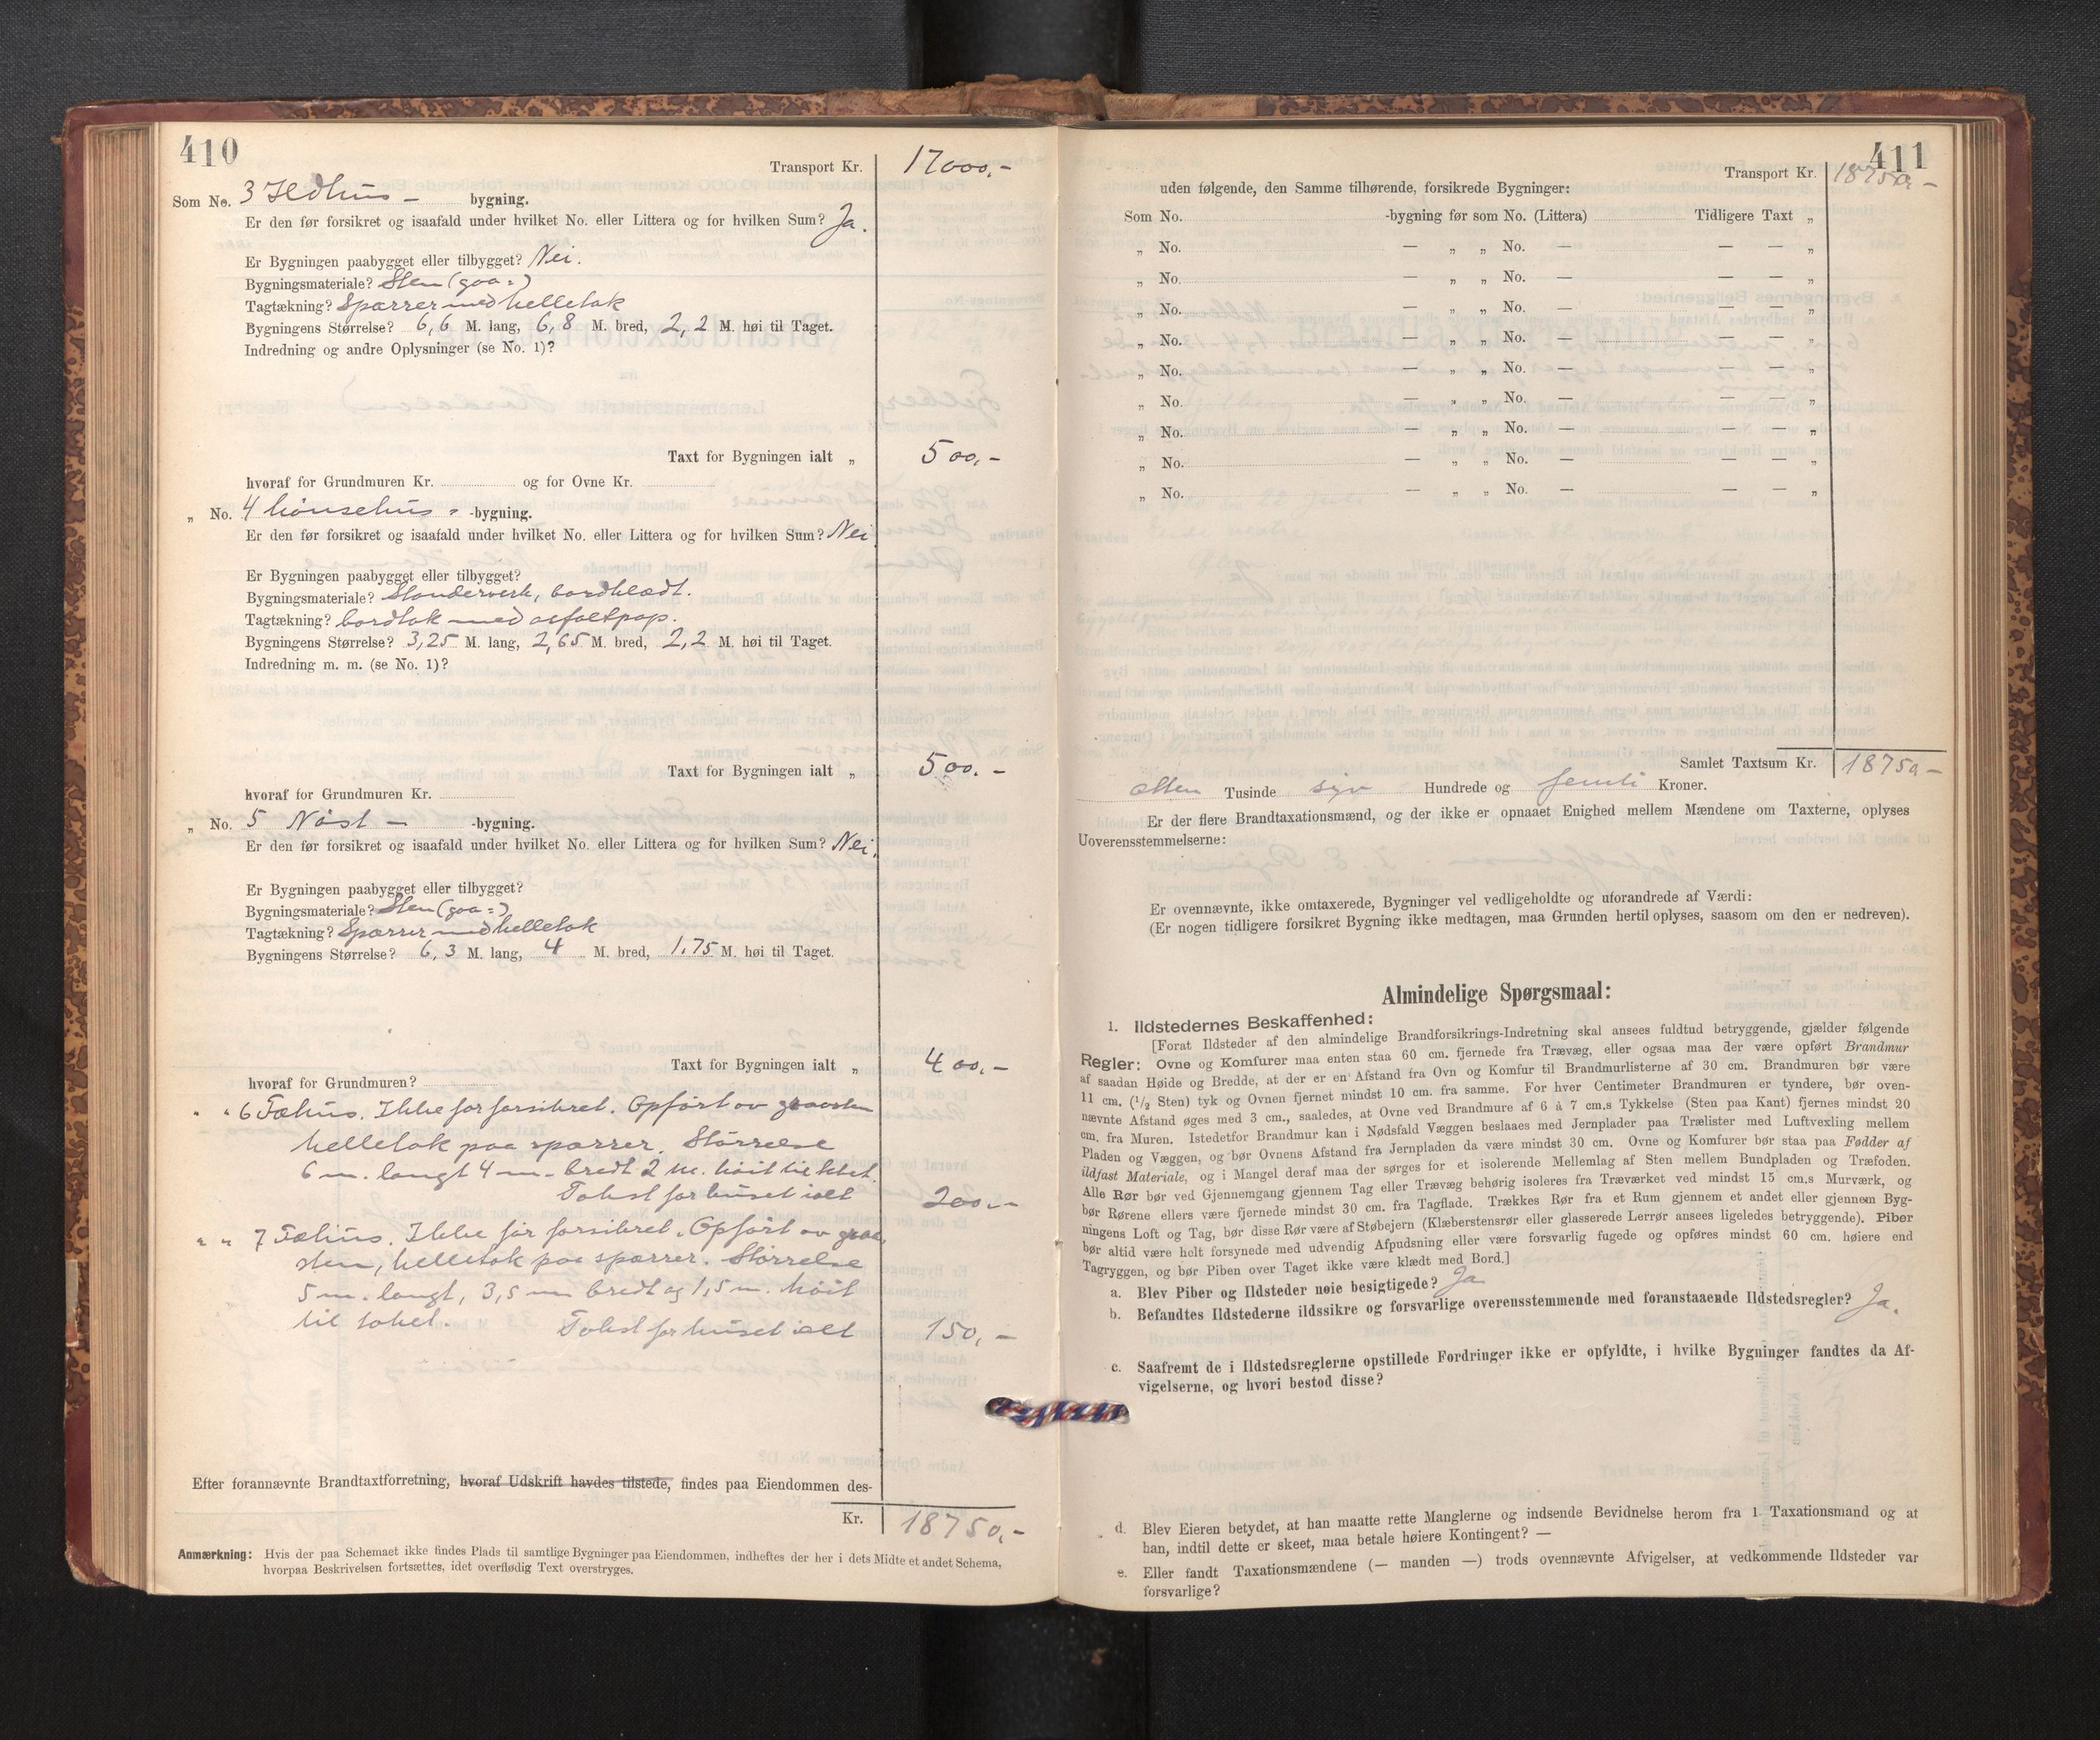 410
Transport Kr. 17000,-
Som No. 3 Ildhus - bygning.
Er den før forsikret og isaafald under hvilket No. eller Littera og for hvilken Sum? Ja.
Er Bygningen paabygget eller tilbygget? Nei.
Bygningsmateriale? Sten (graa=)
Tagtækning? Sparrer med helletak
Bygningens Størrelse? 6,6 M. lang, 6,8 M. bred, 2,2 M. høi til Taget.
Indredning og andre Oplysninger (se No. 1)?
Taxt for Bygningen ialt „ 500,-
hvoraf for Grundmuren Kr. og for Ovne Kr.
„ No. 4 hønsehus - -bygning.
Er den før forsikret og isaafald under hvilket No. eller Littera og for hvilken Sum? Nei
Er Bygningen paabygget eller tilbygget?
Bygningsmateriale? Standerverk, bordklædt.
Tagtækning? bordtak med asfaltpap.
Bygningens Størrelse? 3,25 M. lang, 2,65 M. bred, 2,2 M. høi til Taget.
Indredning m. m. (se No. 1)?
Taxt for Bygningen ialt „ 500.-
hvoraf for Grundmuren Kr.
„ No. 5 Nøst - -bygning.
Er den før forsikret og isaafald under hvilket No. eller Littera og for hvilken Sum? Nei.
Er Bygningen paabygget eller tilbygget?
Bygningsmateriale? Sten (graa=)
Tagtækning? Sparrer med helletak
Bygningens Størrelse? 6,3 M. lang, 4 M. bred, 1,75 M. høi til Taget.
Taxt for Bygningen ialt „ 400,-
hvoraf for Grundmuren?
„ „ 6 Fæhus. Ikke før forsikret. Opført av graasten
helletak paa sparrer. Størrelse
6 m. langt 4 m. bredt 2 m. høit til taket.
Takst for huset ialt 200.-
„ „ 7 Fæhus. Ikke før forsikret. Opført av graa
sten, helletak paa sparrer. Størrelse
5 m. langt, 3,5 m bredt og 1,5 m. høit
til taket. Takst for huset ialt 150,-
Efter forannævnte Brandtaxtforretning, hvoraf Udskrift havdes tilstede, findes paa Eiendommen des-
Kr. 18750,-
Anmærkning: Hvis der paa Schemaet ikke findes Plads til samtlige Bygninger paa Eiendommen, indheftes der her i dets Midte et andet Schema,
hvorpaa Beskrivelsen fortsættes, idet overflødig Text overstryges.
411
Transport Kr. 18750-
uden følgende, den Samme tilhørende, forsikrede Bygninger:
Som No. -bygning før som No. (Littera) Tidligere Taxt „
„ No. — „ „ No. — — — „
„ No. — „ „ No. — — — „
„ No. — „ „ No. — — — „
„ No. — „ „ No. — — — „
„ No. — „ „ No. — — — „
„ No. — „ „ No. — — — „
„ No. — „ „ No. — — — „
„ No. — „ „ No. — — — „
„ No. — „ „ No. — — — „
Samlet Taxtsum Kr. 18750-
Atten Tusinde syv Hundrede og femti Kroner.
Er der flere Brandtaxationsmænd, og der ikke er opnaaet Enighed mellem Mændene om Taxterne, oplyses
Uoverensstemmelserne:
Er ovennævnte, ikke omtaxerede, Bygninger vel vedligeholdte og uforandrede af Værdi:
(Er nogen tidligere forsikret Bygning ikke medtagen, maa Grunden hertil oplyses, saasom om den er nedreven).
Almindelige Spørgsmaal:
1. Ildstedernes Beskaffenhed:
[Forat Ildsteder af den almindelige Brandforsikrings-Indretning skal ansees fuldtud betryggende, gjælder følgende
Regler: Ovne og Komfurer maa enten staa 60 cm. fjernede fra Trævæg, eller ogsaa maa der være opført Brandmur
af saadan Høide og Bredde, at der er en Afstand fra Ovn og Komfur til Brandmurlisterne af 30 cm. Brandmuren bør være
11 cm. (1/2 Sten) tyk og Ovnen fjernet mindst 10 cm. fra samme. For hver Centimeter Brandmuren er tyndere, bør oven-
nævnte Afstand øges med 3 cm., saaledes, at Ovne ved Brandmure af 6 à 7 cm.s Tykkelse (Sten paa Kant) fjernes mindst 20
cm. fra Muren. Istedetfor Brandmur kan i Nødsfald Væggen beslaaes med Jernplader paa Trælister med Luftvexling mellem
Pladen og Væggen, og bør Ovnens Afstand fra Jernpladen da være mindst 30 cm. Ovne og Komfurer bør staa paa Fødder af
ildfast Materiale, og i Mangel deraf maa der sørges for et isolerende Mellemlag af Sten mellem Bundpladen og Træfoden.
Alle Rør bør ved Gjennemgang gjennem Tag eller Trævæg behørig isoleres fra Træværket ved mindst 15 cm.s Murværk, og
bør Rørene ellers være fjernede mindst 30 cm. fra Tagflade. Trækkes Rør fra et Rum gjennem et andet eller gjennem Byg-
ningens Loft og Tag, bør disse Rør være af Støbejern (Klæberstensrør eller glasserede Lerrør ansees ligeledes betryggende). Piber
bør altid være helt forsynede med udvendig Afpudsning eller være forsvarlig fugede og opføres mindst 60 cm. høiere end
Tagryggen, og bør Piben over Taget ikke være klædt med Bord.]
a. Blev Piber og Ildsteder nøie besigtigede? Ja
b. Befandtes Ildstederne ildssikre og forsvarlige overensstemmende med foranstaaende Ildstedsregler? Ja.
c. Saafremt de i Ildstedsreglerne opstillede Fordringer ikke er opfyldte, i hvilke Bygninger fandtes da Af-
vigelserne, og hvori bestod disse?
d. Blev Eieren betydet, at han maatte rette Manglerne og indsende Bevidnelse herom fra 1 Taxationsmand og at
han, indtil dette er skeet, maa betale høiere Kontingent? —
e. Eller fandt Taxationsmændene (— manden —) trods ovennævnte Afvigelser, at vedkommende Ildsteder var
forsvarlige?